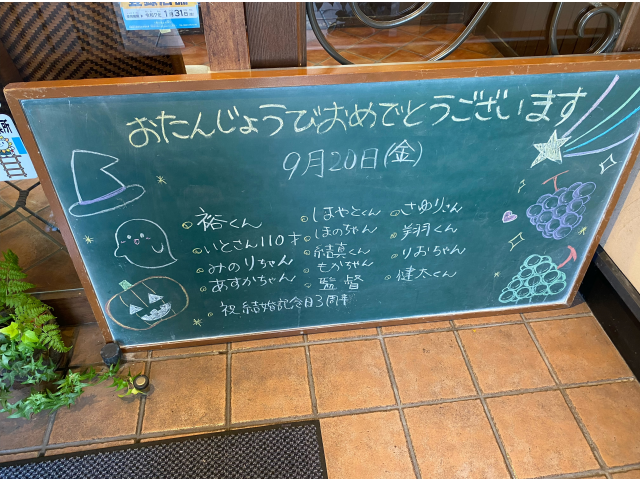 1月31日
おたんじょうびおめでとうございます
9月20日(金)
裕くん
いとさん110才
みのりちゃん
あすかちゃん
はやとくん
ほのちゃん
結真くん
もかちゃん
監督
さゆりさん
翔くん
りおちゃん
健太くん
祝結婚記念日3周年